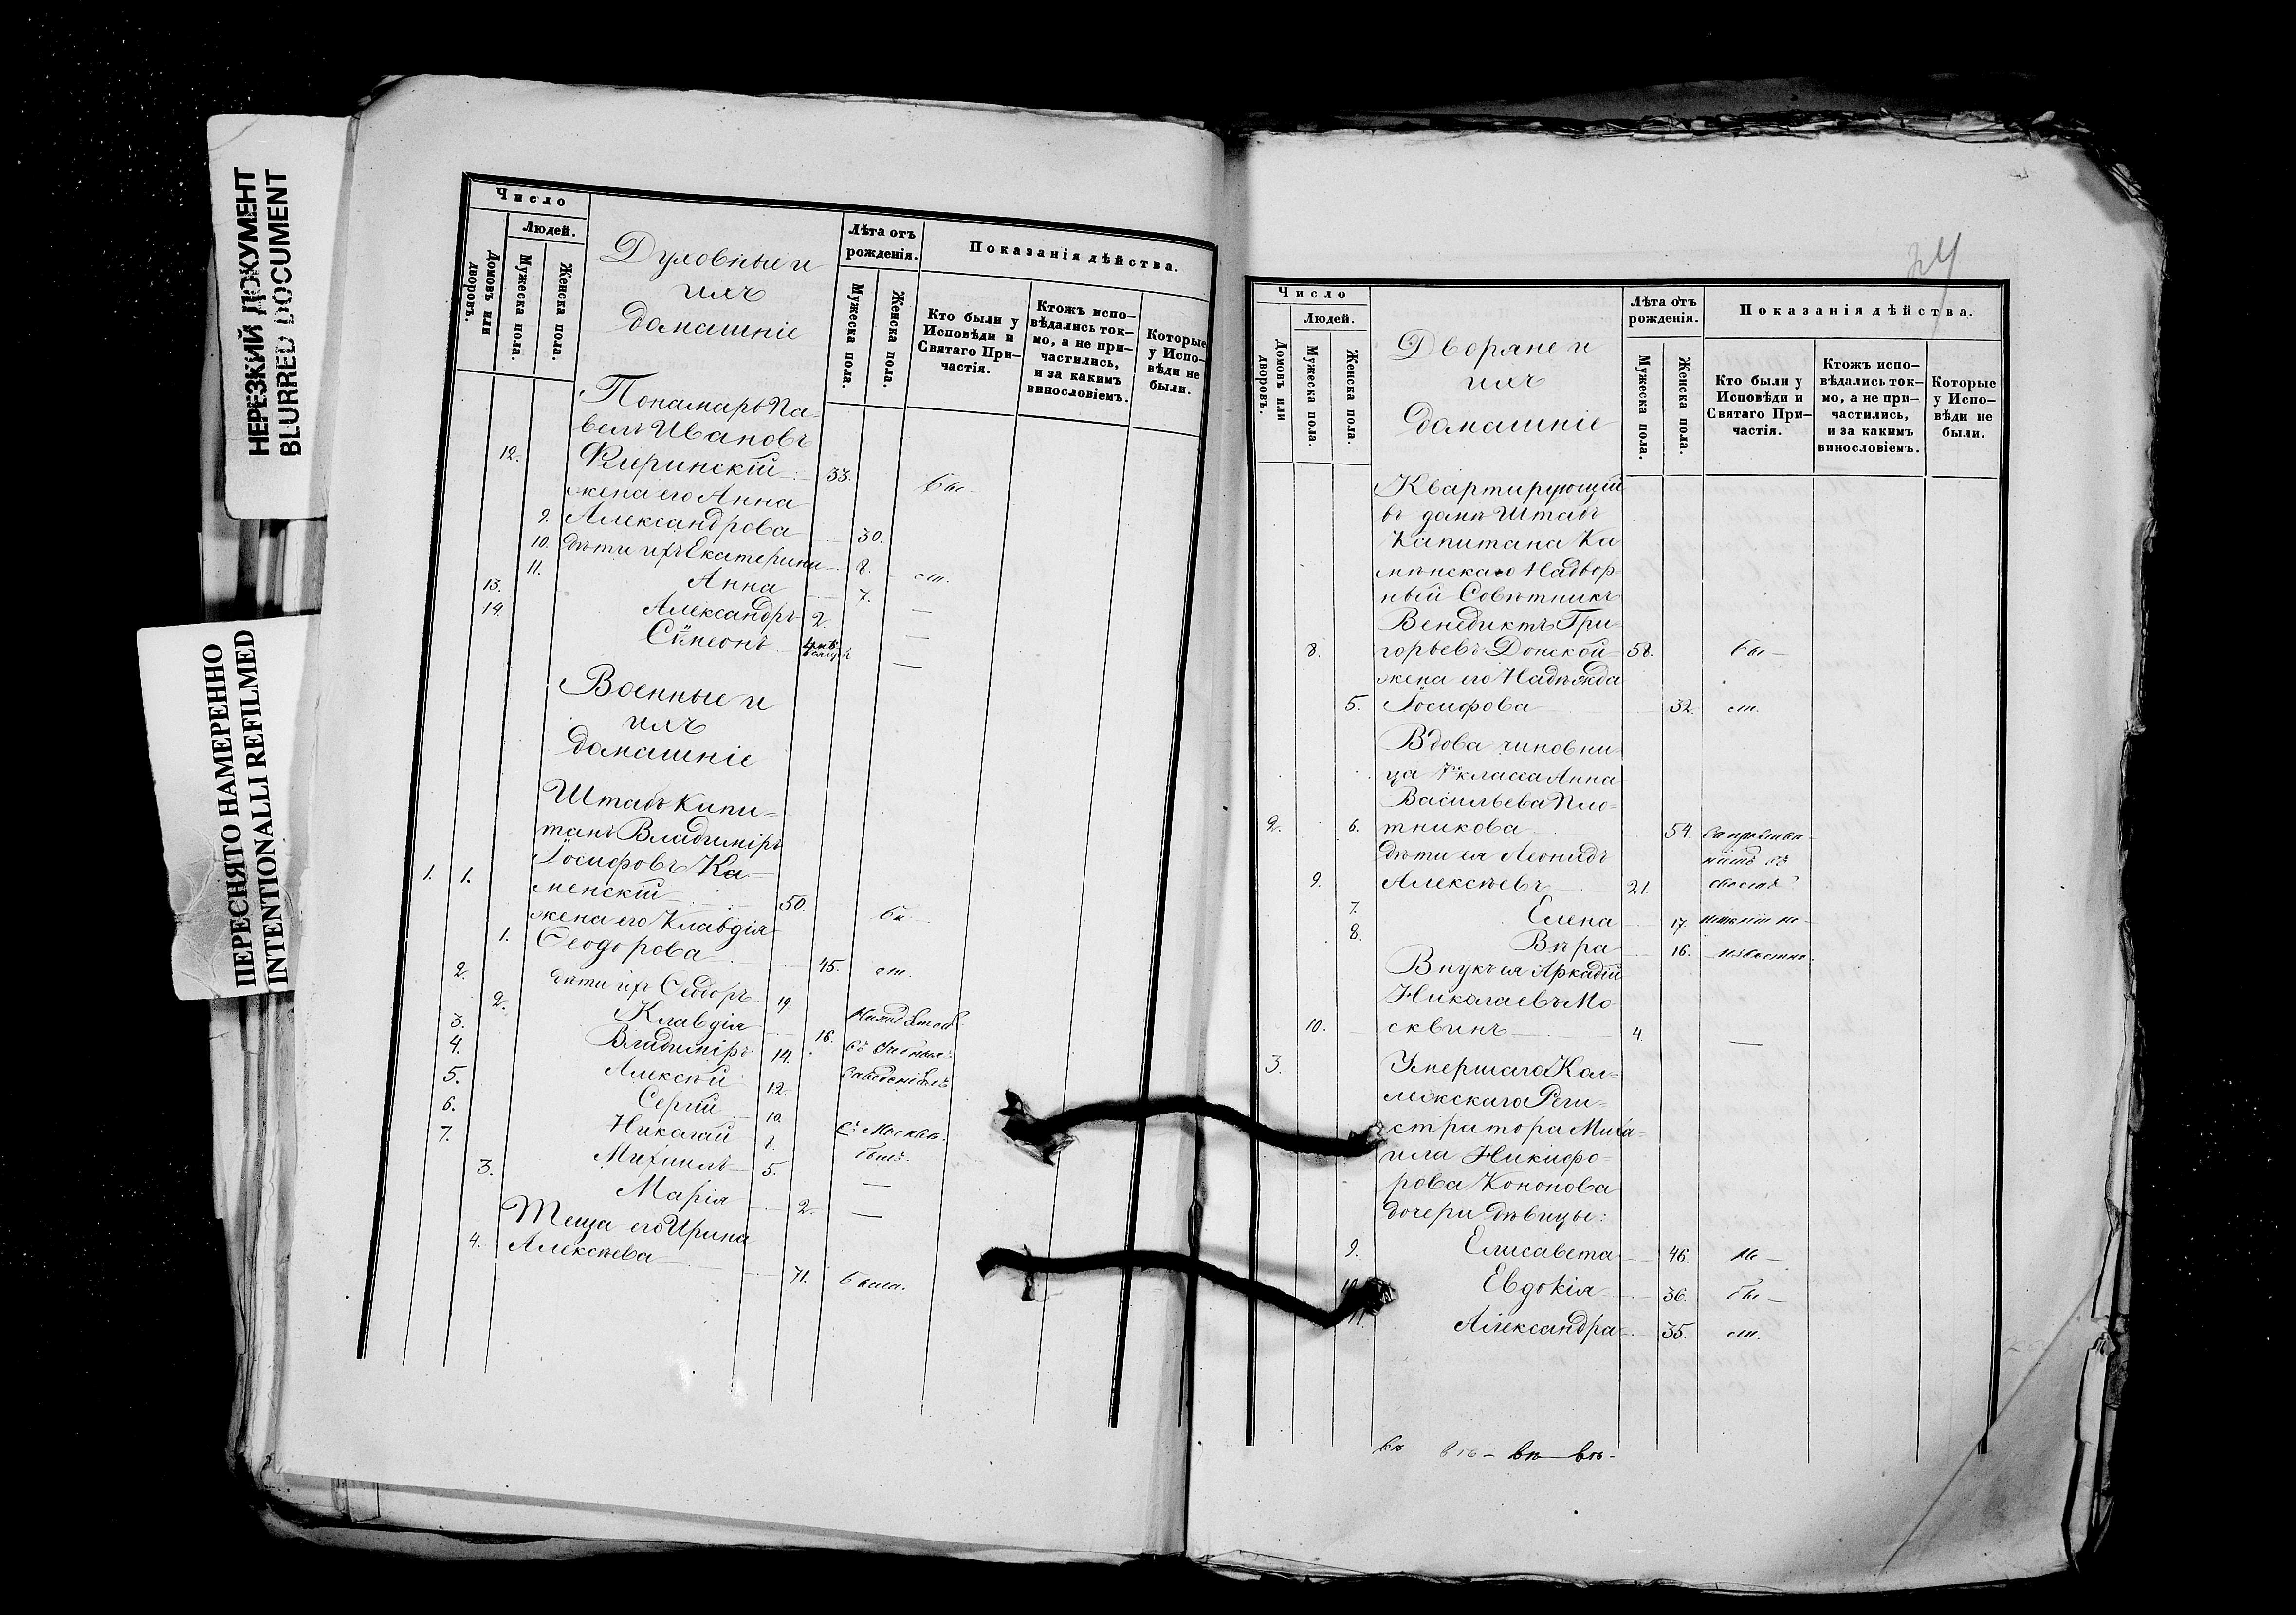 НЕРЕЗКИЙ ДОКУМЕНТ
BLURRED DOCUMENT
ПЕРЕСНЯТО НАМЕРЕННО
INTENTIONALLI REFILMED
Число
Людей.
Домовъ или дворовъ.
Мужеска пола.
Женска пола.
Духовные и
ихъ
домашніе
Лѣта отъ рожденія.
Мужеска пола.
Женска пола.
Показанія дѣйства.
Кто были у Исповѣди и Святаго При-частія.
Ктожъ испо-вѣдались ток-мо, а не при-частились, и за какимъ винословіемъ.
Которые у Испо-вѣди не были.
Пономарь Па-
велъ Ивановъ
12. Киринскій 33. бы
жена его Анна
9. Александрова 30.
10. дѣти ихъ Екатерина 8. ли.
11. Анна 7. —
13. Александръ 2. —
14. Сѵмеонъ —
Военные и
ихъ
домашніе
Штабъ Капи-
танъ Владиміръ
Іосифовъ Ка-
1. 1. менскій 50. бы
жена его Клавдія
1. Ѳеодорова 45. ли.
2. дѣти ихъ Ѳеодоръ 19.
2. Клавдія 16.
3. Владиміръ 14. въ
4. Алексѣй 12. заведеніяхъ
5. Сергій 10.
6. Николай 8. г. Москвы.
7. Михаилъ 5. —
3. Марія 2. —
Теща его Ирина
4. Алексѣева 71. была.
34
Число
Людей.
Домовъ или дворовъ.
Мужеска пола.
Женска пола.
Дворяне и
ихъ
домашніе
Лѣта отъ рожденія.
Мужеска пола.
Женска пола.
Показанія дѣйства.
Кто были у Исповѣди и Святаго При-частія.
Ктожъ испо-вѣдались ток-мо, а не при-частились, и за какимъ винословіемъ.
Которые у Испо-вѣди не были.
Квартирующій
въ домѣ Штабъ
Капитана Ка
мѣнскаго Надвор-
ный Совѣтникъ
Венедиктъ Гри-
8. горьевъ Донской 58. бы —
жена его Надѣжда
5. Іосифова 32. ли.
Вдова чиновни-
ца 7го класса Анна
Васильева Пло-
2. 6. тникова 54.
дѣти ея Леонидъ
9. Алексѣевъ 21.
7. Елена 17.
8. Вѣра 16. неизвѣстно.
Внукъ ея Аркадій
Николаевъ Мо
10. сквинъ 4. —
3. Умершаго Кол-
лежскаго Реги-
стратора Миха-
ила Никифо-
рова Кононова
дочери дѣвицы:
9. Елисавета 46. не —
10. Евдокія 36. бы —
11. Александра 35. ли.
въ въ - въ - въ -